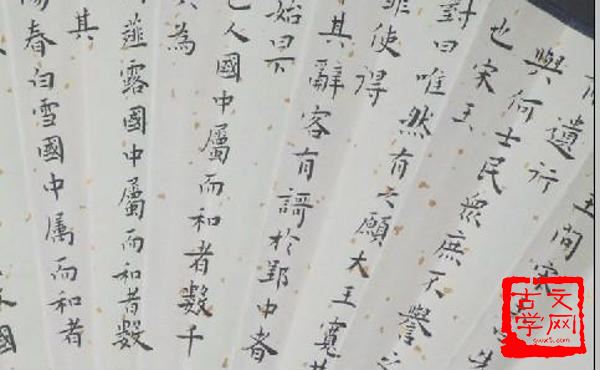 王問宋
遺行
與何士民眾庶不譽之
也宋玉
對曰唯然有之願大王寬其
罪使得
其辭客有謌於郢中者
始曰下
巴人國中屬而和者數千
其為
薤露國中屬而和者數
其
陽春白雪國中屬而和者
國
古文学网
gwx5.com